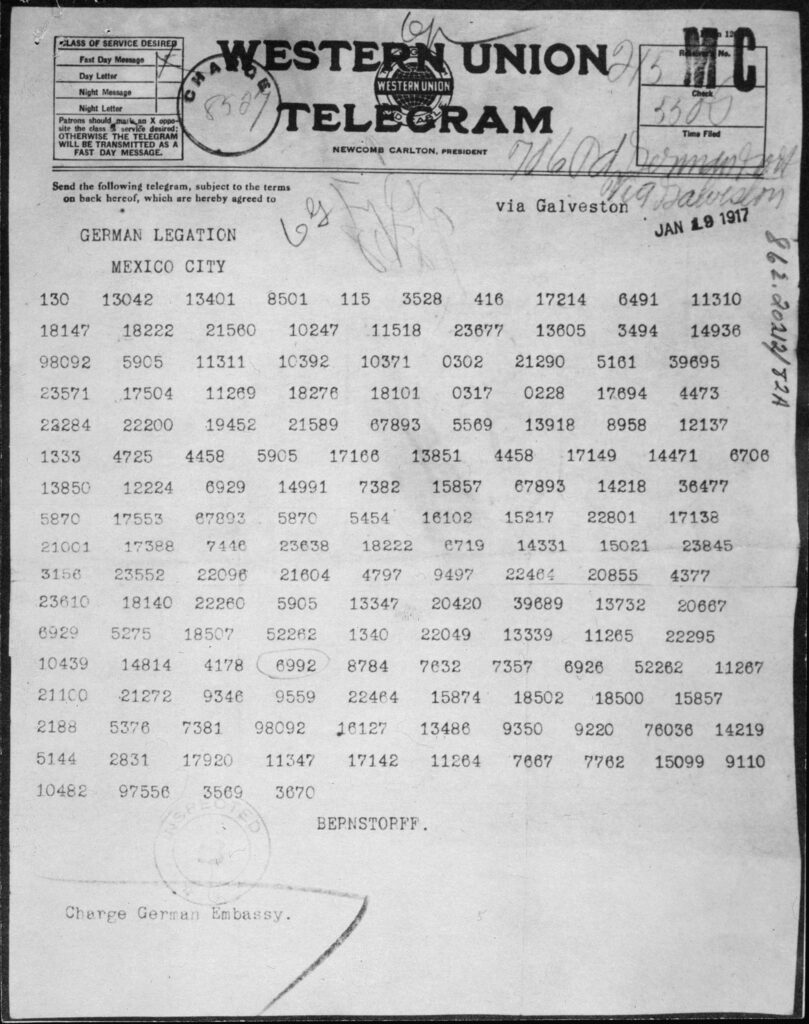 CLASS OF SERVICE DESIRED
Fast Day Message
Day Letter
Night Message
Night Letter
Patrons should mark an X oppo-
site the class of service desired;
OTHERWISE THE TELEGRAM
WILL BE TRANSMITTED AS A
FAST DAY MESSAGE.
CHARGE
WESTERN UNION
WESTERN UNION
TELEGRAM
NEWCOMB CARLTON, PRESIDENT
Receiver's No.
Check
Time Filed
MC
Send the following telegram, subject to the terms
on back hereof, which are hereby agreed to
via Galveston
via Galveston
JAN 19 1917
862.20212/82A
GERMAN LEGATION
MEXICO CITY
130 13042 13401 8501 115 3528 416 17214 6491 11310
18147 18222 21560 10247 11518 23677 13605 3494 14936
98092 5905 11311 10392 10371 0302 21290 5161 39695
23571 17504 11269 18276 18101 0317 0228 17694 4473
22284 22200 19452 21589 67893 5569 13918 8958 12137
1333 4725 4458 5905 17166 13851 4458 17149 14471 6706
13850 12224 6929 14991 7382 15857 67893 14218 36477
5870 17553 67893 5870 5454 16102 15217 22801 17138
21001 17388 7446 23638 18222 6719 14331 15021 23845
3156 23552 22096 21604 4797 9497 22464 20855 4377
23610 18140 22260 5905 13347 20420 39689 13732 20667
6929 5275 18507 52262 1340 22049 13339 11265 22295
10439 14814 4178 6992 8784 7632 7357 6926 52262 11267
21100 21272 9346 9559 22464 15874 18502 18500 15857
2188 5376 7381 98092 16127 13486 9350 9220 76036 14219
5144 2831 17920 11347 17142 11264 7667 7762 15099 9110
10482 97556 3569 3670
BERNSTORFF.
INSPECTED
Charge German Embassy.